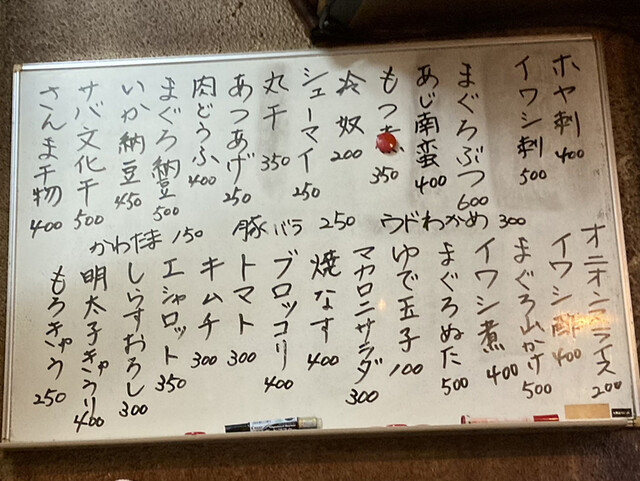 ホヤ刺 400
イワシ刺 500
まぐろぶつ 600
あじ南蛮 400
もつ 350
冷奴 200
シューマイ 250
丸干 350
あつあげ 250
肉どうふ 400
まぐろ納豆 500
いか納豆 450
サバ文化干 500
さんま干物 400
ウドわかめ 300
豚バラ 250
かわたま 150
オニオンスライス 200
イワシ酢 400
まぐろ山かけ 500
イワシ煮 400
まぐろぬた 500
ゆで玉子 100
マカロニサラダ 300
焼なす 400
ブロッコリ 400
トマト 300
キムチ 300
エシャロット 350
しらすおろし 300
明太子きゅうり 400
もろきゅう 250